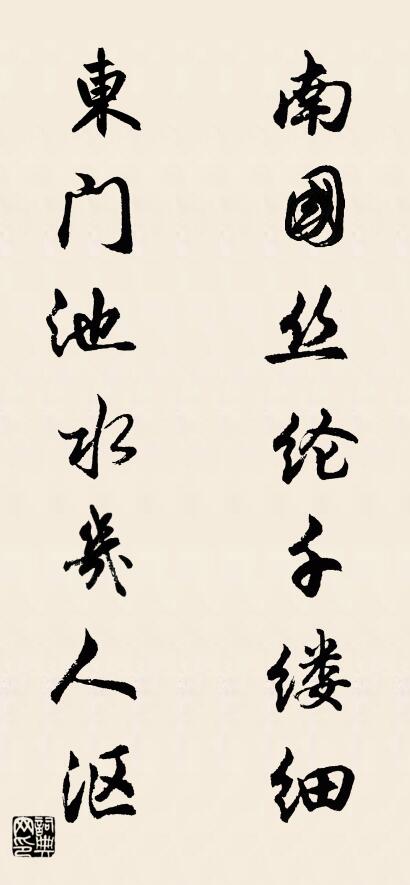 南國丝纶千缕细
東门池水幾人沤
詞典网印